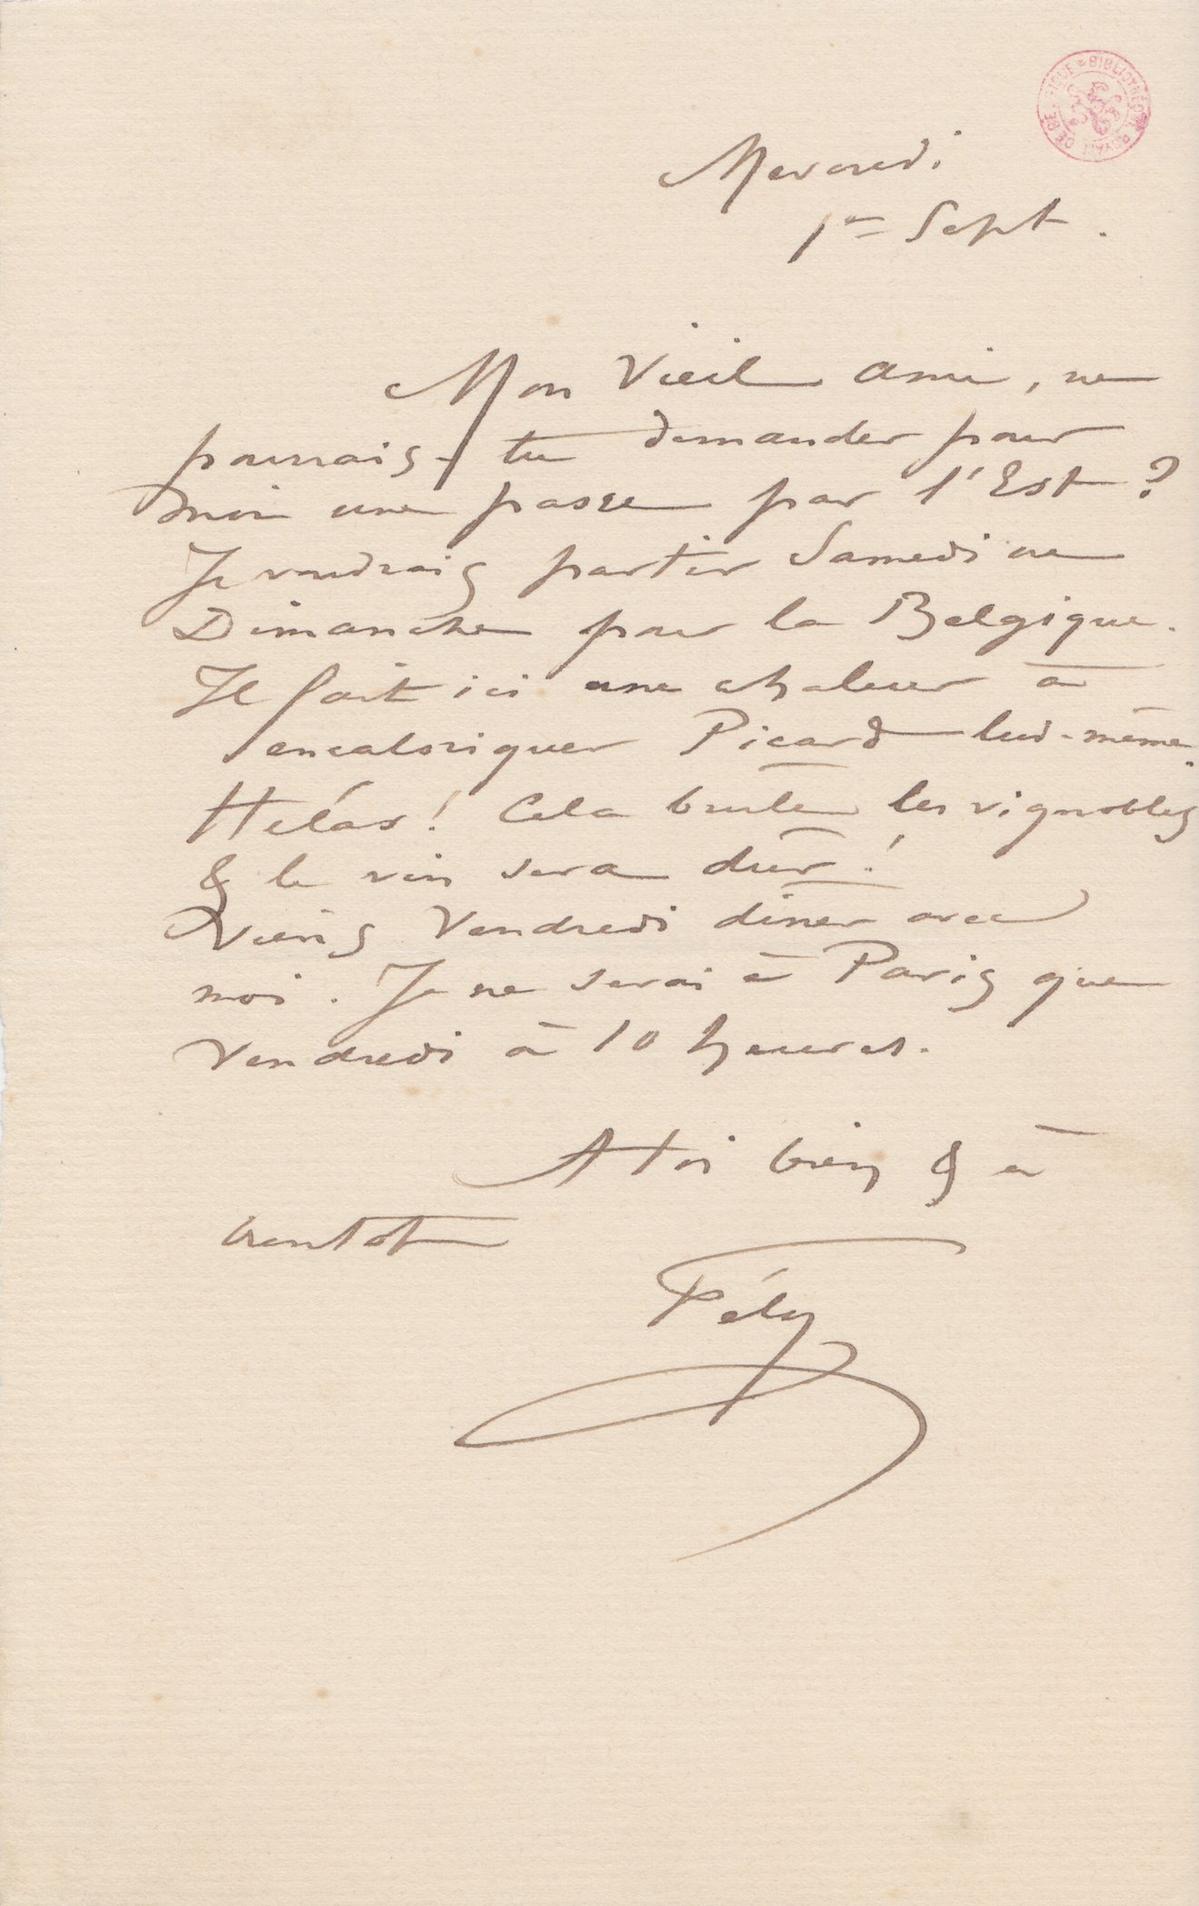 BIBLIOTHÈQUE ROYALE DE BELGIQUE
Mercredi
1er Sept.
Mon Vieil ami, ne
pourrais-tu demander pour
moi une passe par l'Est ?
Je voudrais partir Samedi ou
Dimanche pour la Belgique.
Il fait ici une chaleur à
encaloriquer Picard lui-même.
Hélas ! Cela brule les vignobles
& le vin sera dur !
Viens Vendredi dîner avec
moi. Je ne serai à Paris que
Vendredi à 10 heures.
A toi bien & à
bientot
Fély